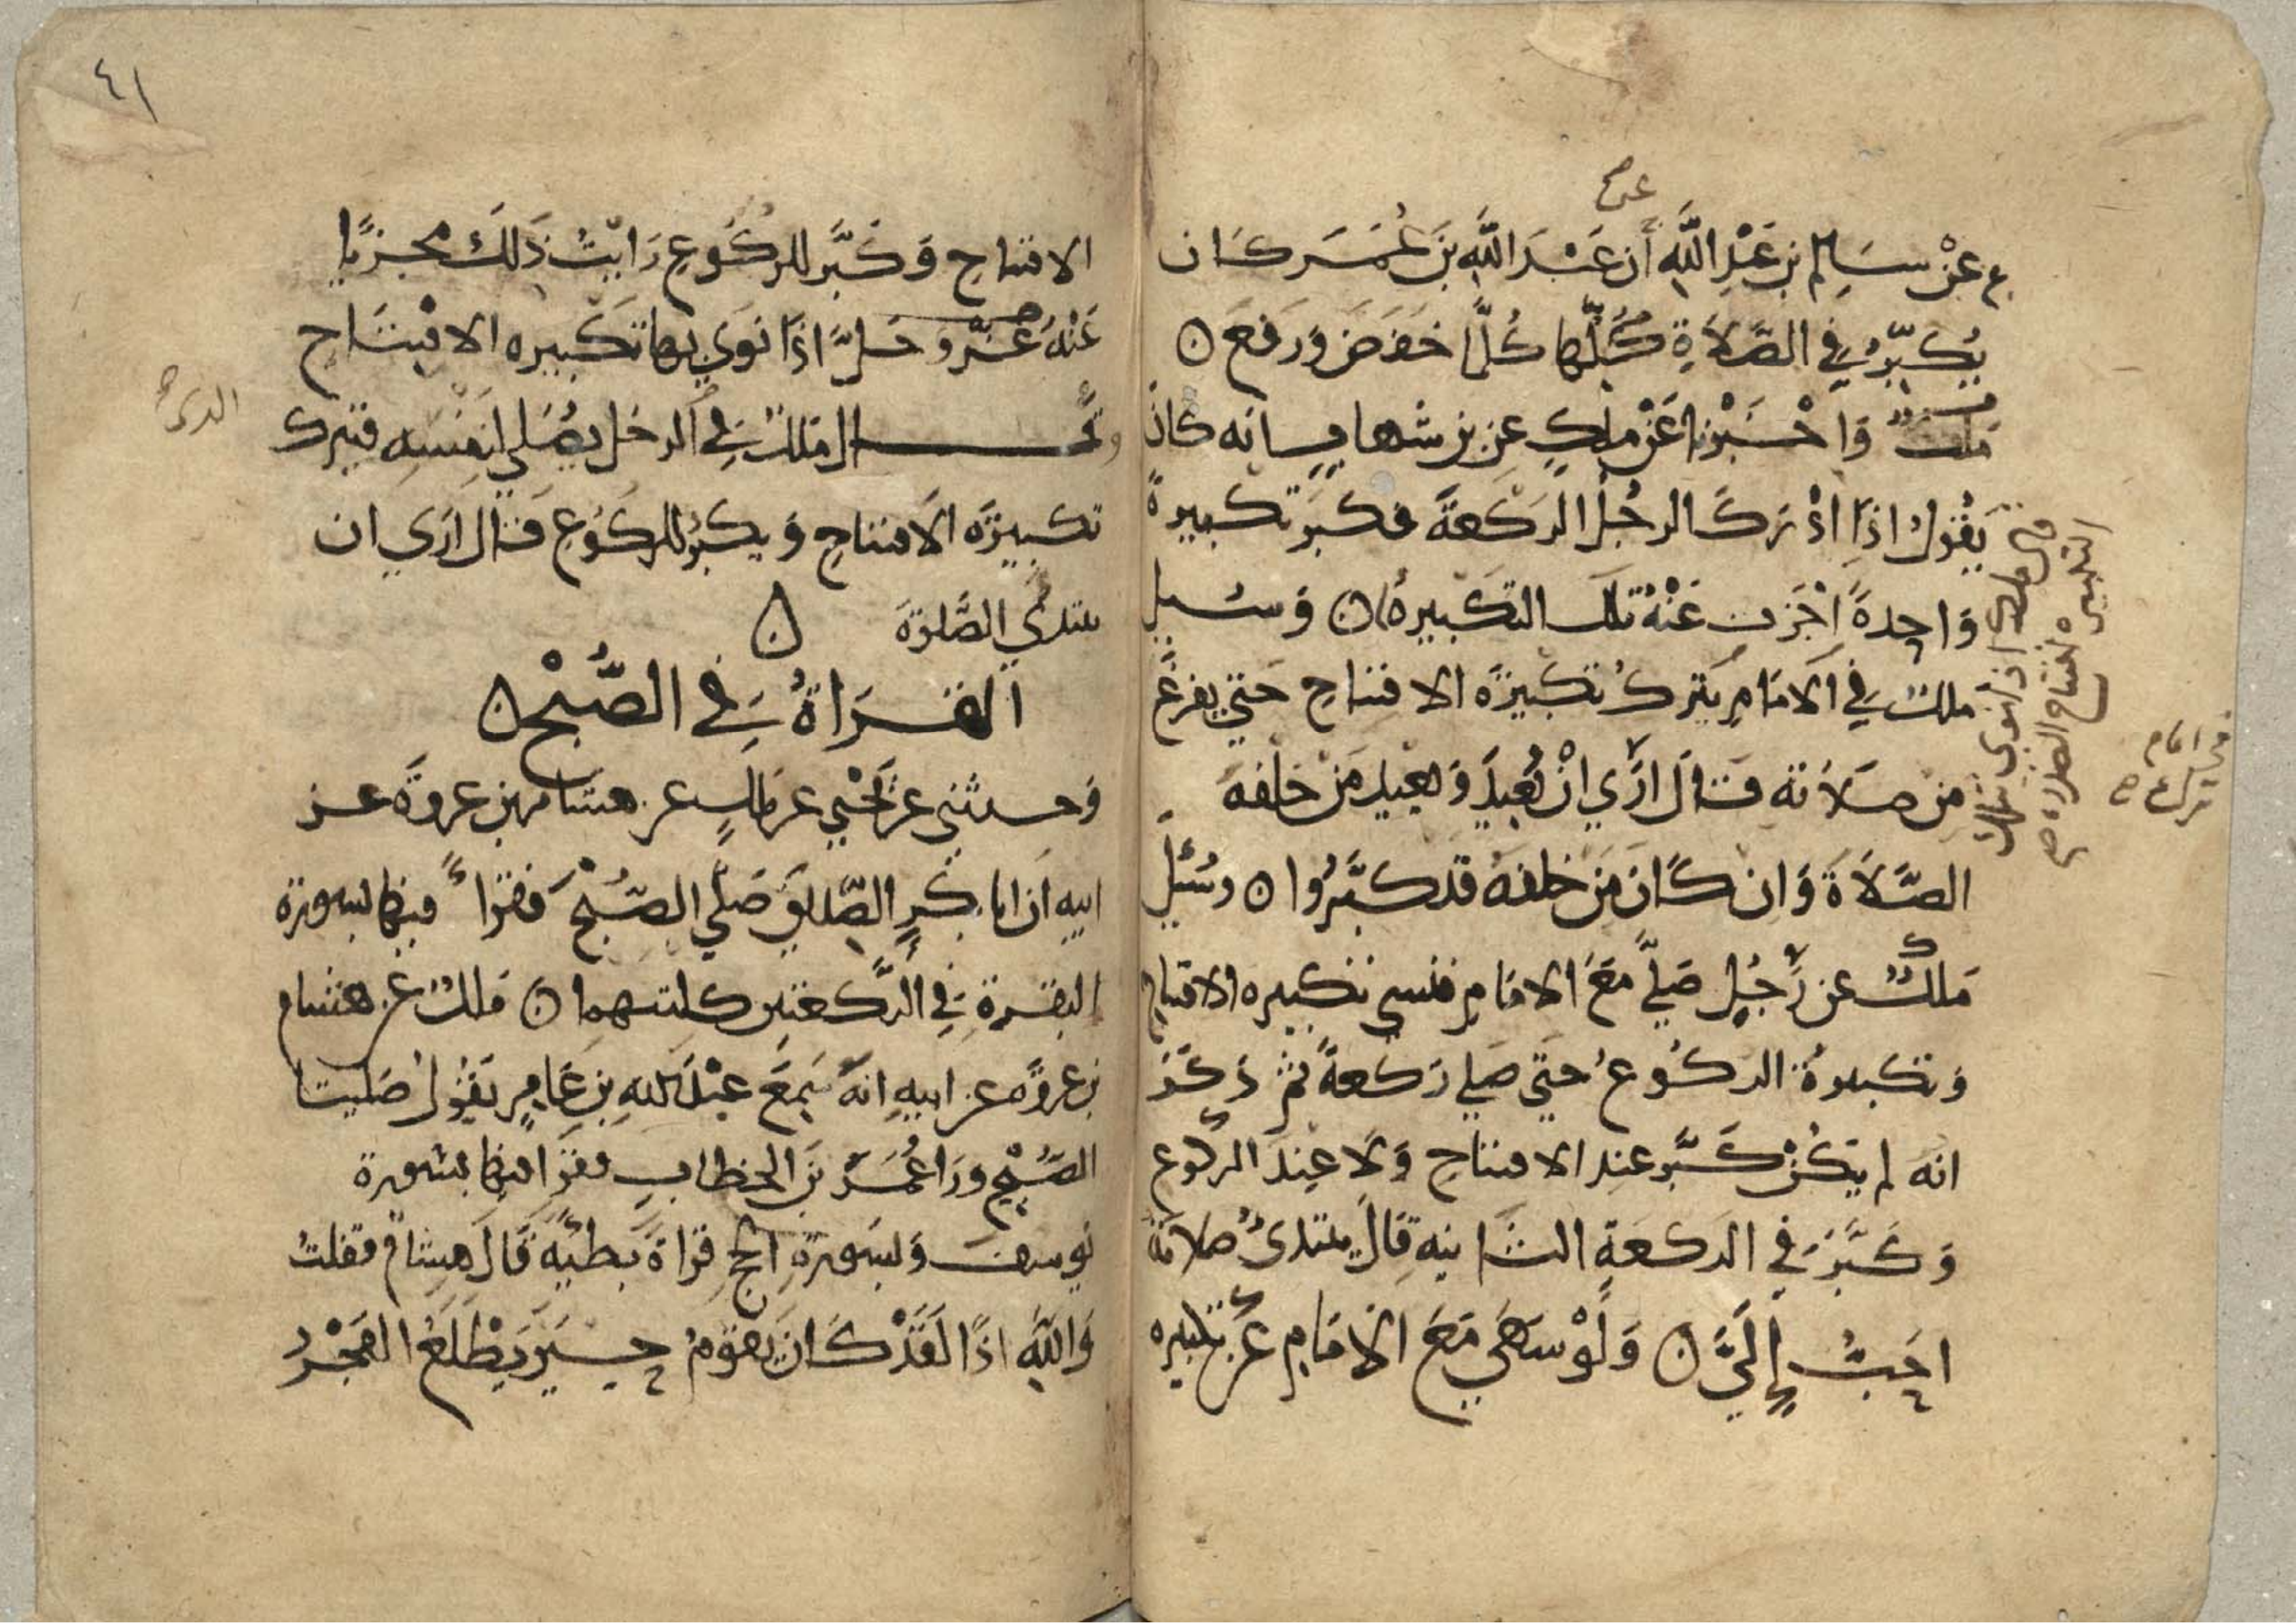 عن
عن سالم بن عبد الله أن عبد الله بن عمر كان
يكبر في الصلاة كلها كلما خفض ورفع
ملك واخبرنا عن ملك عن بن شهاب انه كان
يقول اذا ادرك الرجل الركعة فكبر تكبيرة
واحدة اجزت عنه تلك التكبيرة وسيل
ملك في الامام يترك تكبيرة الافتتاح حتي يفرغ
من صلاته فقال اري ان يعيد ويعيد من خلفه
الصلاة وان كان من خلفه قد كبروا وسئل
ملك عن رجل صلي مع الامام فنسي تكبيره الافتتاح
وتكبيرة الركوع حتي صلي ركعة ثم ذكر
انه لم يكن كبر عند الافتتاح ولا عند الركوع
وكبر في الركعة الثانيه قال يبتدئ صلاته
احب إلي ولو سهي مع الامام عن تكبيره
قال ملك اذا نوي بتلك
التكبيره افتتاح الصلاة
امام
٤١
الافتتاح وكبر للركوع رايت ذلك مجزيا
عنه اذا نوي بها تكبيره الافتتاح
قال ملك في الرجل يصلي لنفسه فترك
تكبيرة الافتتاح ويكبر للركوع قال اري ان
يبتدي الصلوة
القراة في الصبح
وحدثني عن يحيي عن مالك عن هشام بن عروة عن
ابيه ان ابا بكر الصديق صلي الصبح فقرا فيها بسورة
البقرة في الركعتين كلتيهما ملك عن هشام
بن عروه عن ابيه انه سمع عبد الله بن عامر يقول صلينا
الصبح ورا عمر بن الخطاب فقرا فيها بسورة
يوسف وبسورة الحج قراة بطيه قال هشام فقلت
والله اذا لقد كان يقوم حين يطلع الفجر